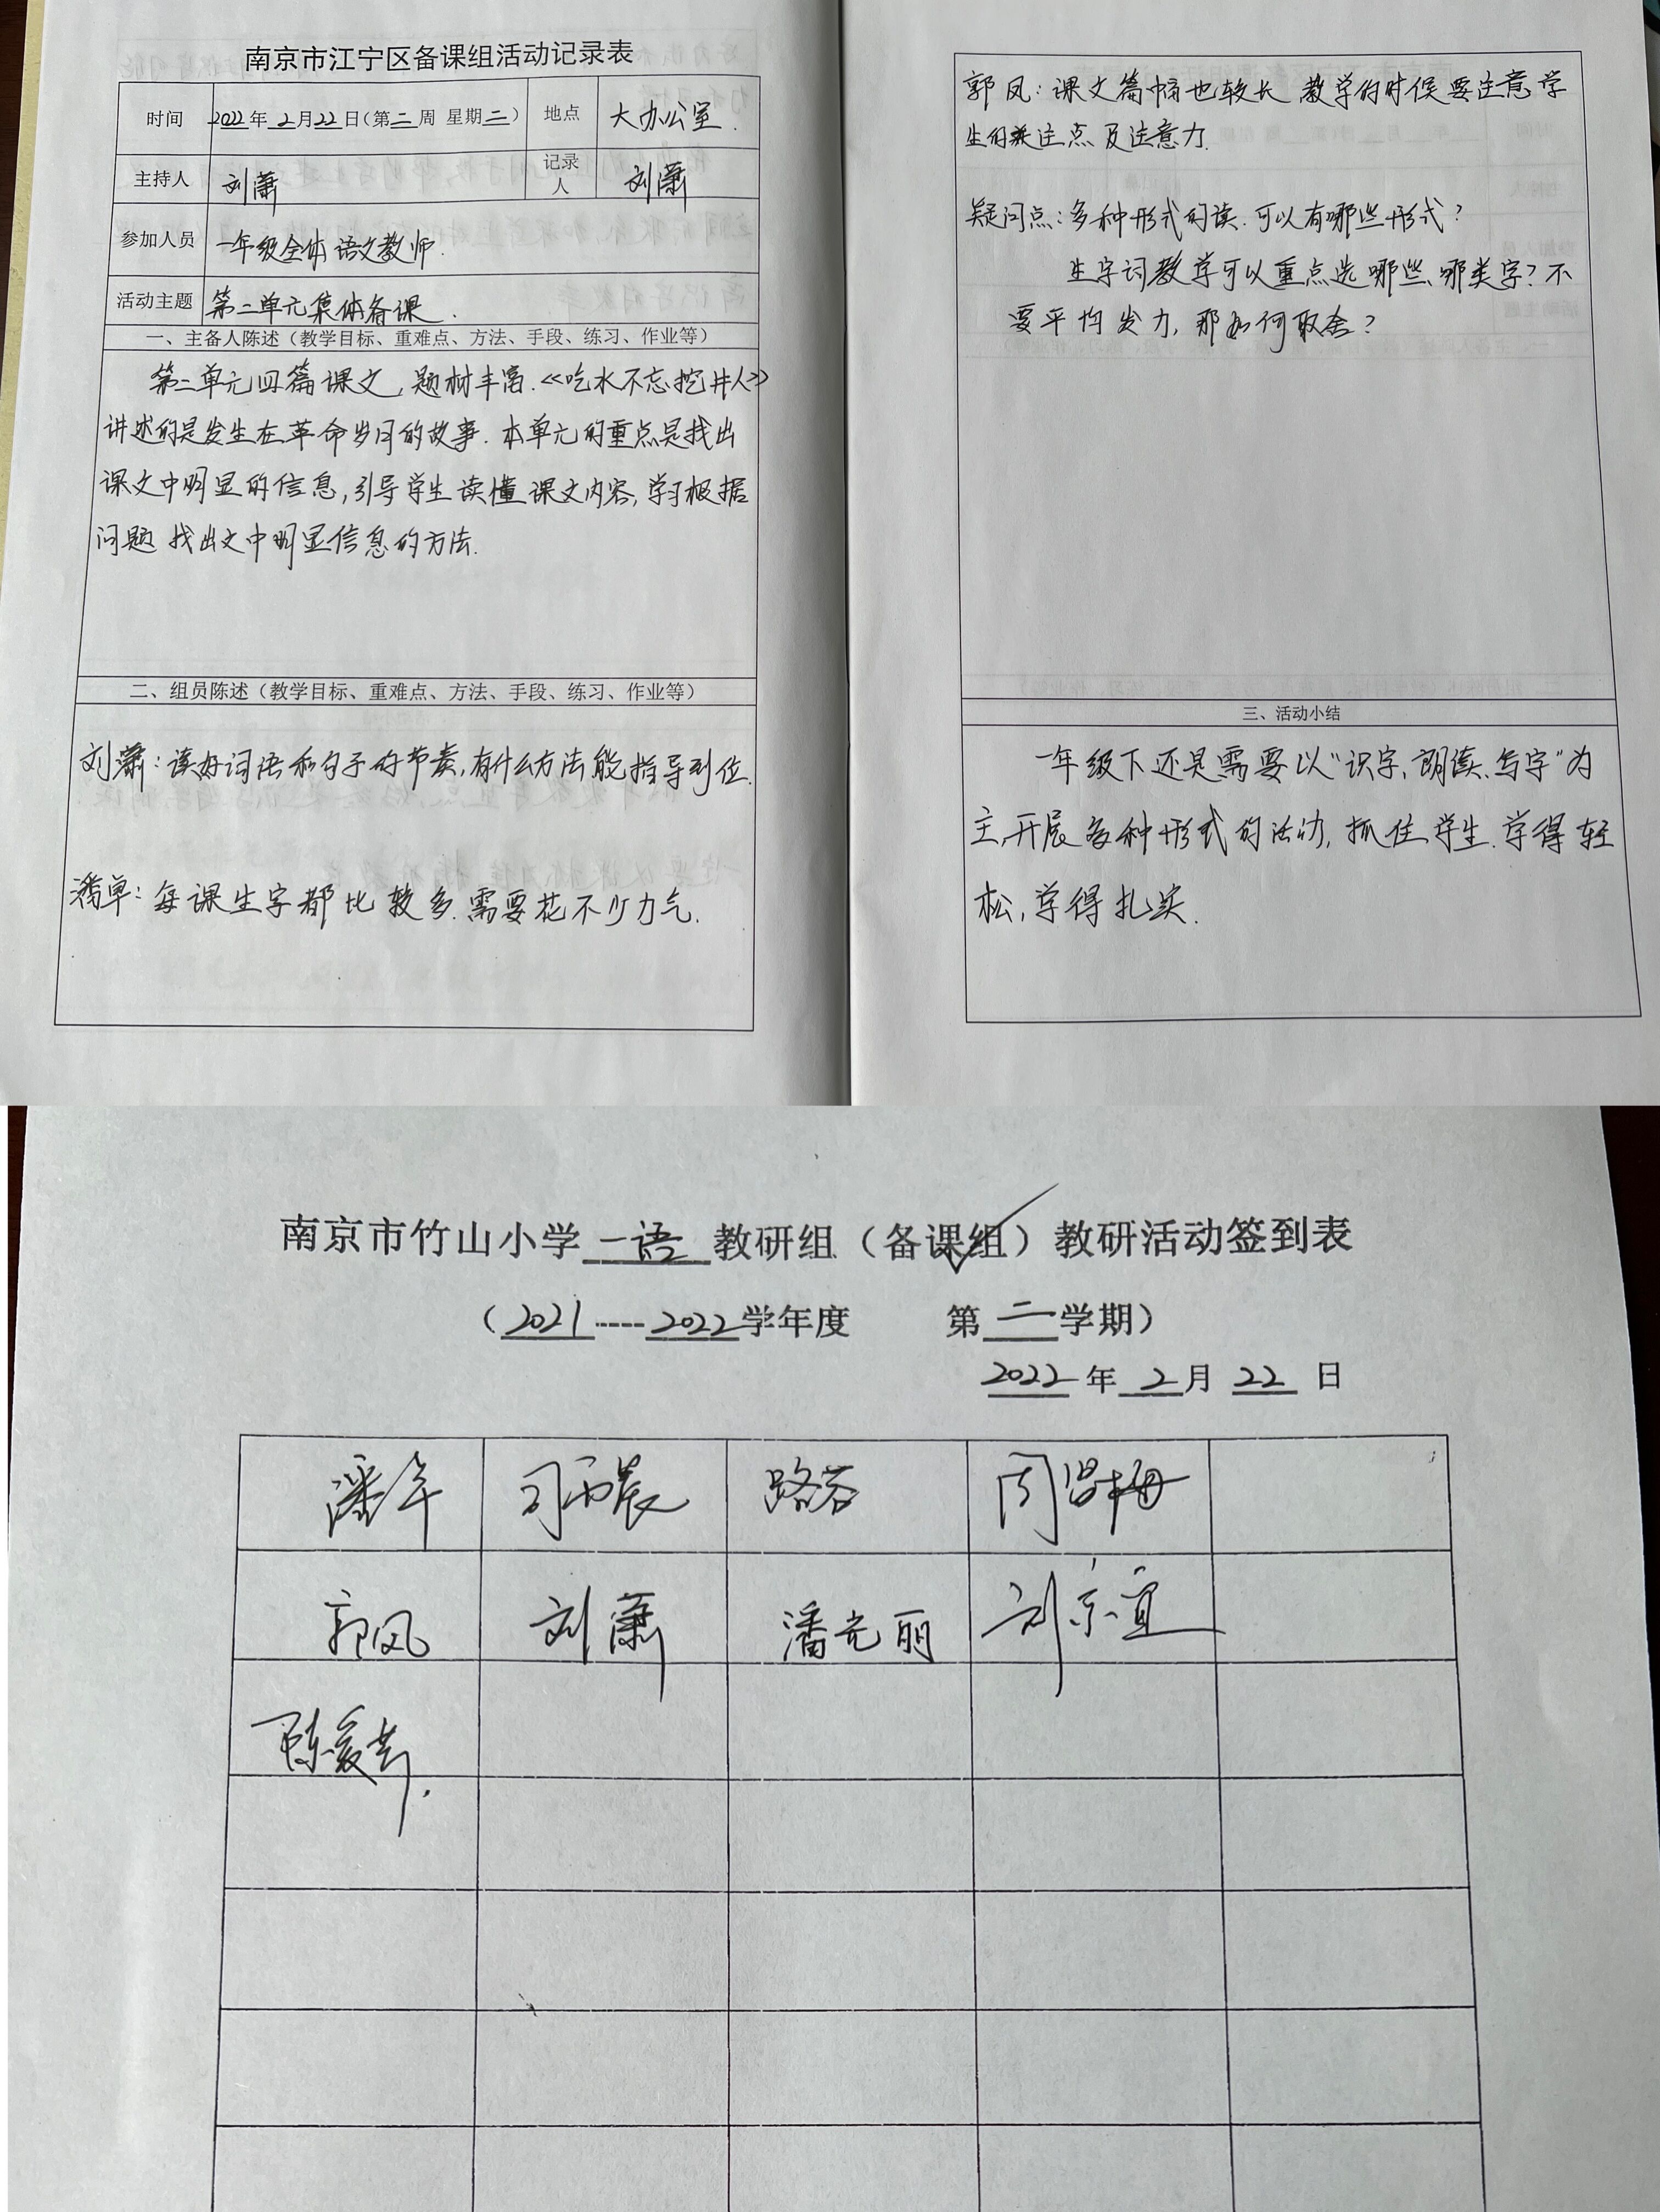 南京市江宁区备课组活动记录表
时间 2022年2月22日(第二周 星期二) 地点 大办公室.
主持人 刘萧 记录人 刘萧
参加人员 一年级全体语文教师.
活动主题 第二单元集体备课.
一、主备人陈述（教学目标、重难点、方法、手段、练习、作业等）
第二单元四篇课文,题材丰富.《吃水不忘挖井人》
讲述的是发生在革命岁月的故事.本单元的重点是找出
课文中明显的信息,引导学生读懂课文内容,学习根据
问题找出文中明显信息的方法.
二、组员陈述（教学目标、重难点、方法、手段、练习、作业等）
刘萧:读好词语和句子的节奏,有什么方法能指导到位.
潘单:每课生字都比较多.需要花不少力气.
郭凤:课文篇幅也较长 教学的时候要注意学
生的关注点及注意力.
疑问点:多种形式的读.可以有哪些形式?
生字词教学可以重点选哪些、哪类字?不
要平均发力,那如何取舍?
三、活动小结
一年级下还是需要以“识字、朗读、写字”为
主,开展多种形式的活动,抓住学生.学得轻
松,学得扎实.
南京市竹山小学一语教研组（备课组）教研活动签到表
（2021----2022学年度 第二学期）
2022年2月22日
潘单 司雨晨 路茗
郭凤 刘萧 潘克丽 刘京宜